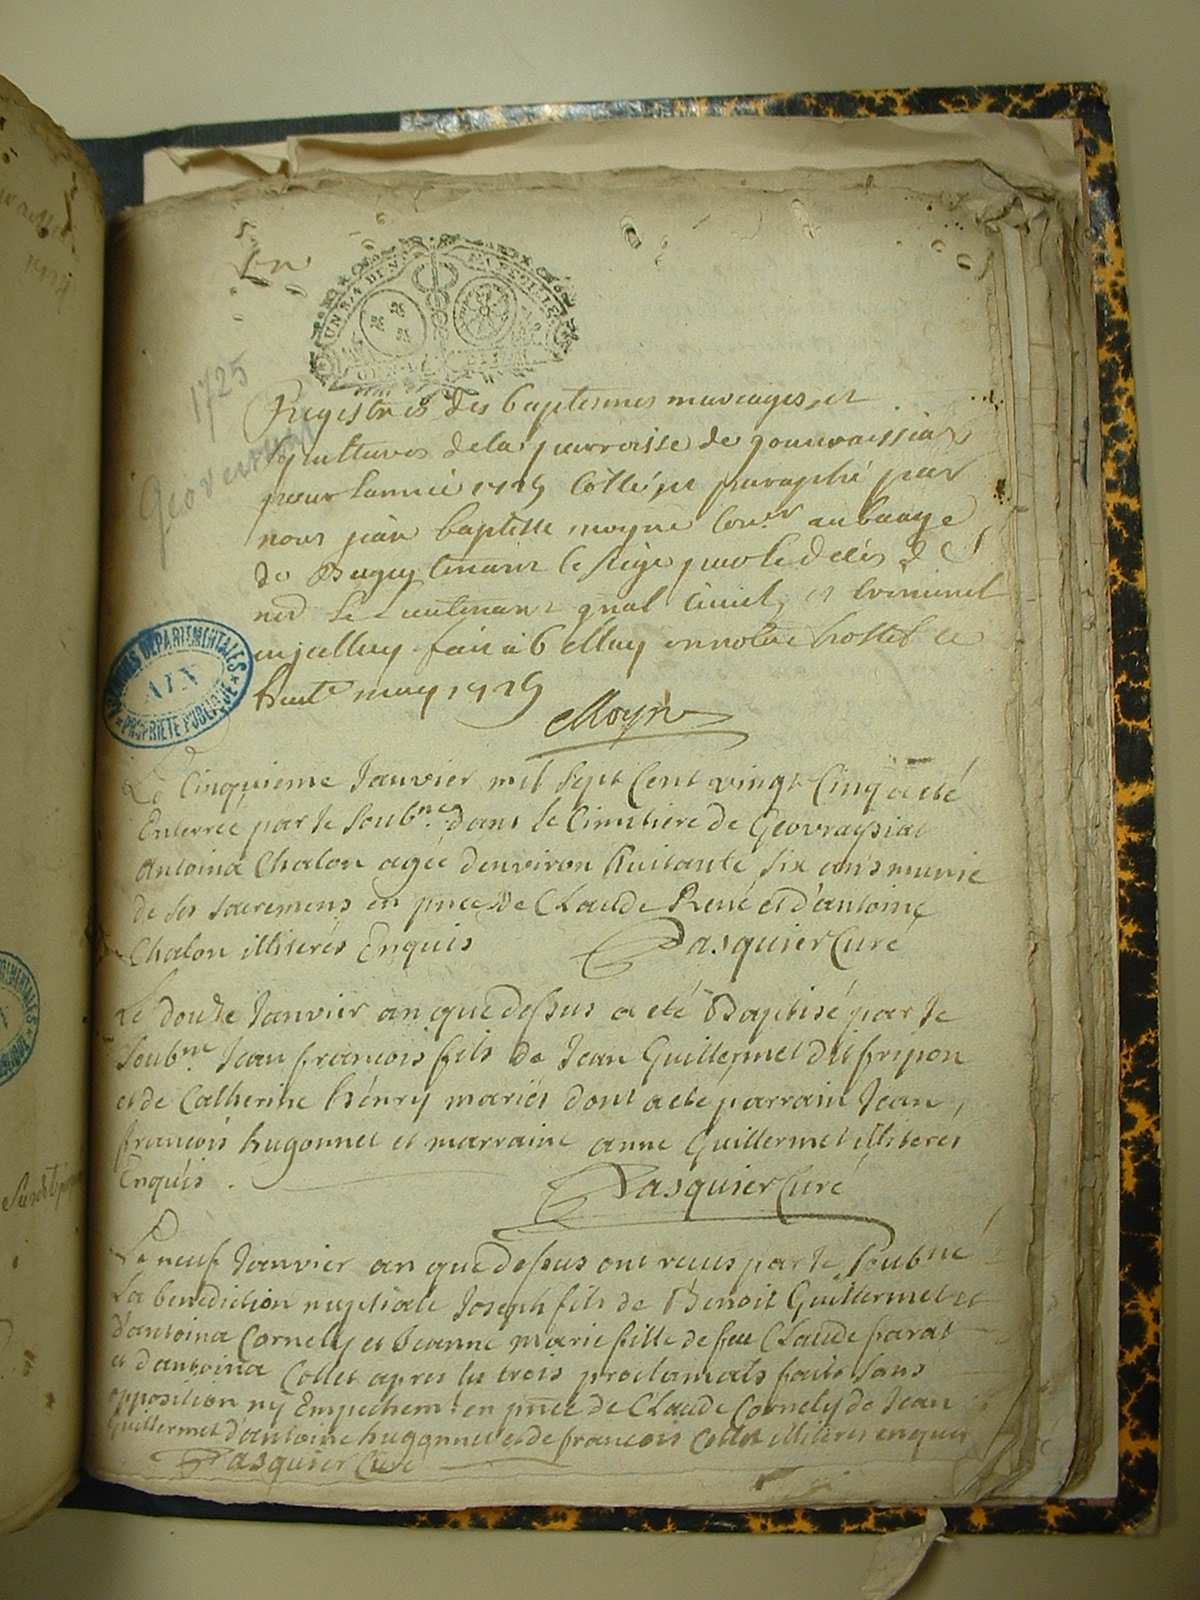 1725
Registres des baptesmes mariages et
sepultures de la parroisse de
pour lannée 1725 Cotté et paraphé par
nous jean baptiste moyne au
de Bugey tenant le siege par le deces de
le Lieutenant gnal Civil et Criminel
fait a Belley en notre hostel ce
huit may 1725
Moyne
ARCHIVES DEPARTEMENTALES
AIN
PROPRIETE PUBLIQUE
Le Cinquieme Janvier mil sept Cent vingt Cinq a eté
Enterree par le soubne dans le Cimetiere de Geovraysiat
Antoina Chalon agee denviron huitante six ans munie
de ses sacremens en pnce de Claude René et d'antoine
Chalon illiterés Enquis Pasquier Curé
Le douze Janvier an que dessus a eté Baptisé par le
soubne Jean francois fils de Jean Guillermet dit fripon
et de Catherine henry mariés dont a eté parrain Jean
francois hugonnet et marraine anne Guillermet illiteres
Enquis . Pasquier Curé
Le neuf Janvier an que dessus ont receus par le soubne
La benediction nuptiale Joseph fils de Benoit Guillermet et
d'antoina Cornely et Jeanne marie fille de feu Claude farat
et d'antoina Collet apres les trois proclamats faits sans
opposition ny Empechemt en pnce de Claude Cornely de Jean
Guillermet d'antoine hugonnet et de francois Collet illiteres enquis
Pasquier Curé